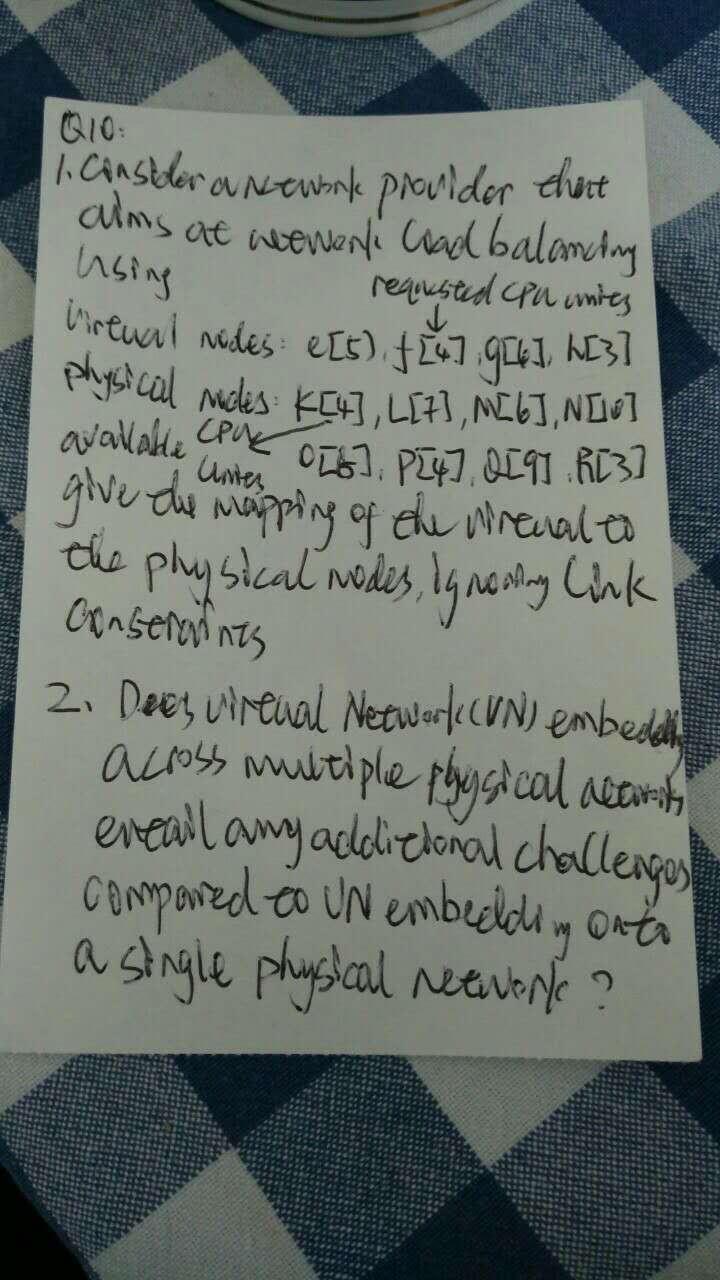 Q10:
1. Consider a network provider that
aims at network load balancing
using
requested CPU unites
↓
virtual nodes: e[5], f[4], g[6], h[3]
physical nodes: K[4], L[7], M[6], N[10]
available CPU
unites O[8], P[4], Q[9], R[3]
give the mapping of the virtual to
the physical nodes, ignoring link
constraints
2. Does virtual Network(VN) embedding
across multiple physical networks
entail any additional challenges
compared to VN embedding onto
a single physical network?